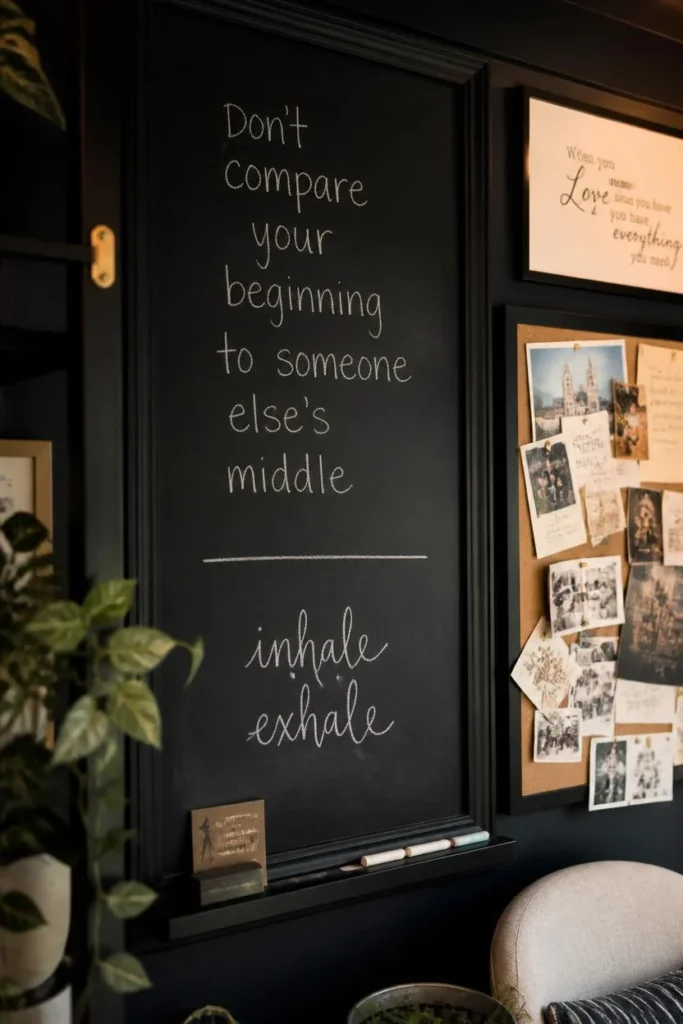 Don't
compare
your
beginning
to someone
else's
middle
inhale
exhale
When you
Love what you have
you have
everything
you need